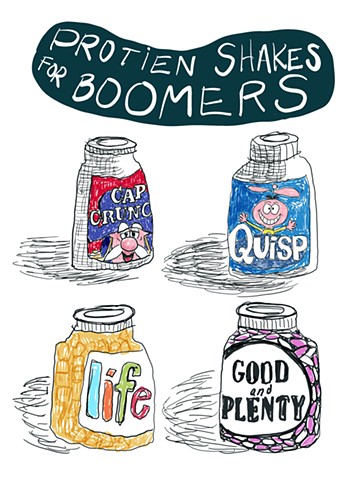 PROTIEN SHAKES
FOR BOOMERS
CAP
CRUNC
QUISP
life
GOOD
and
PLENTY